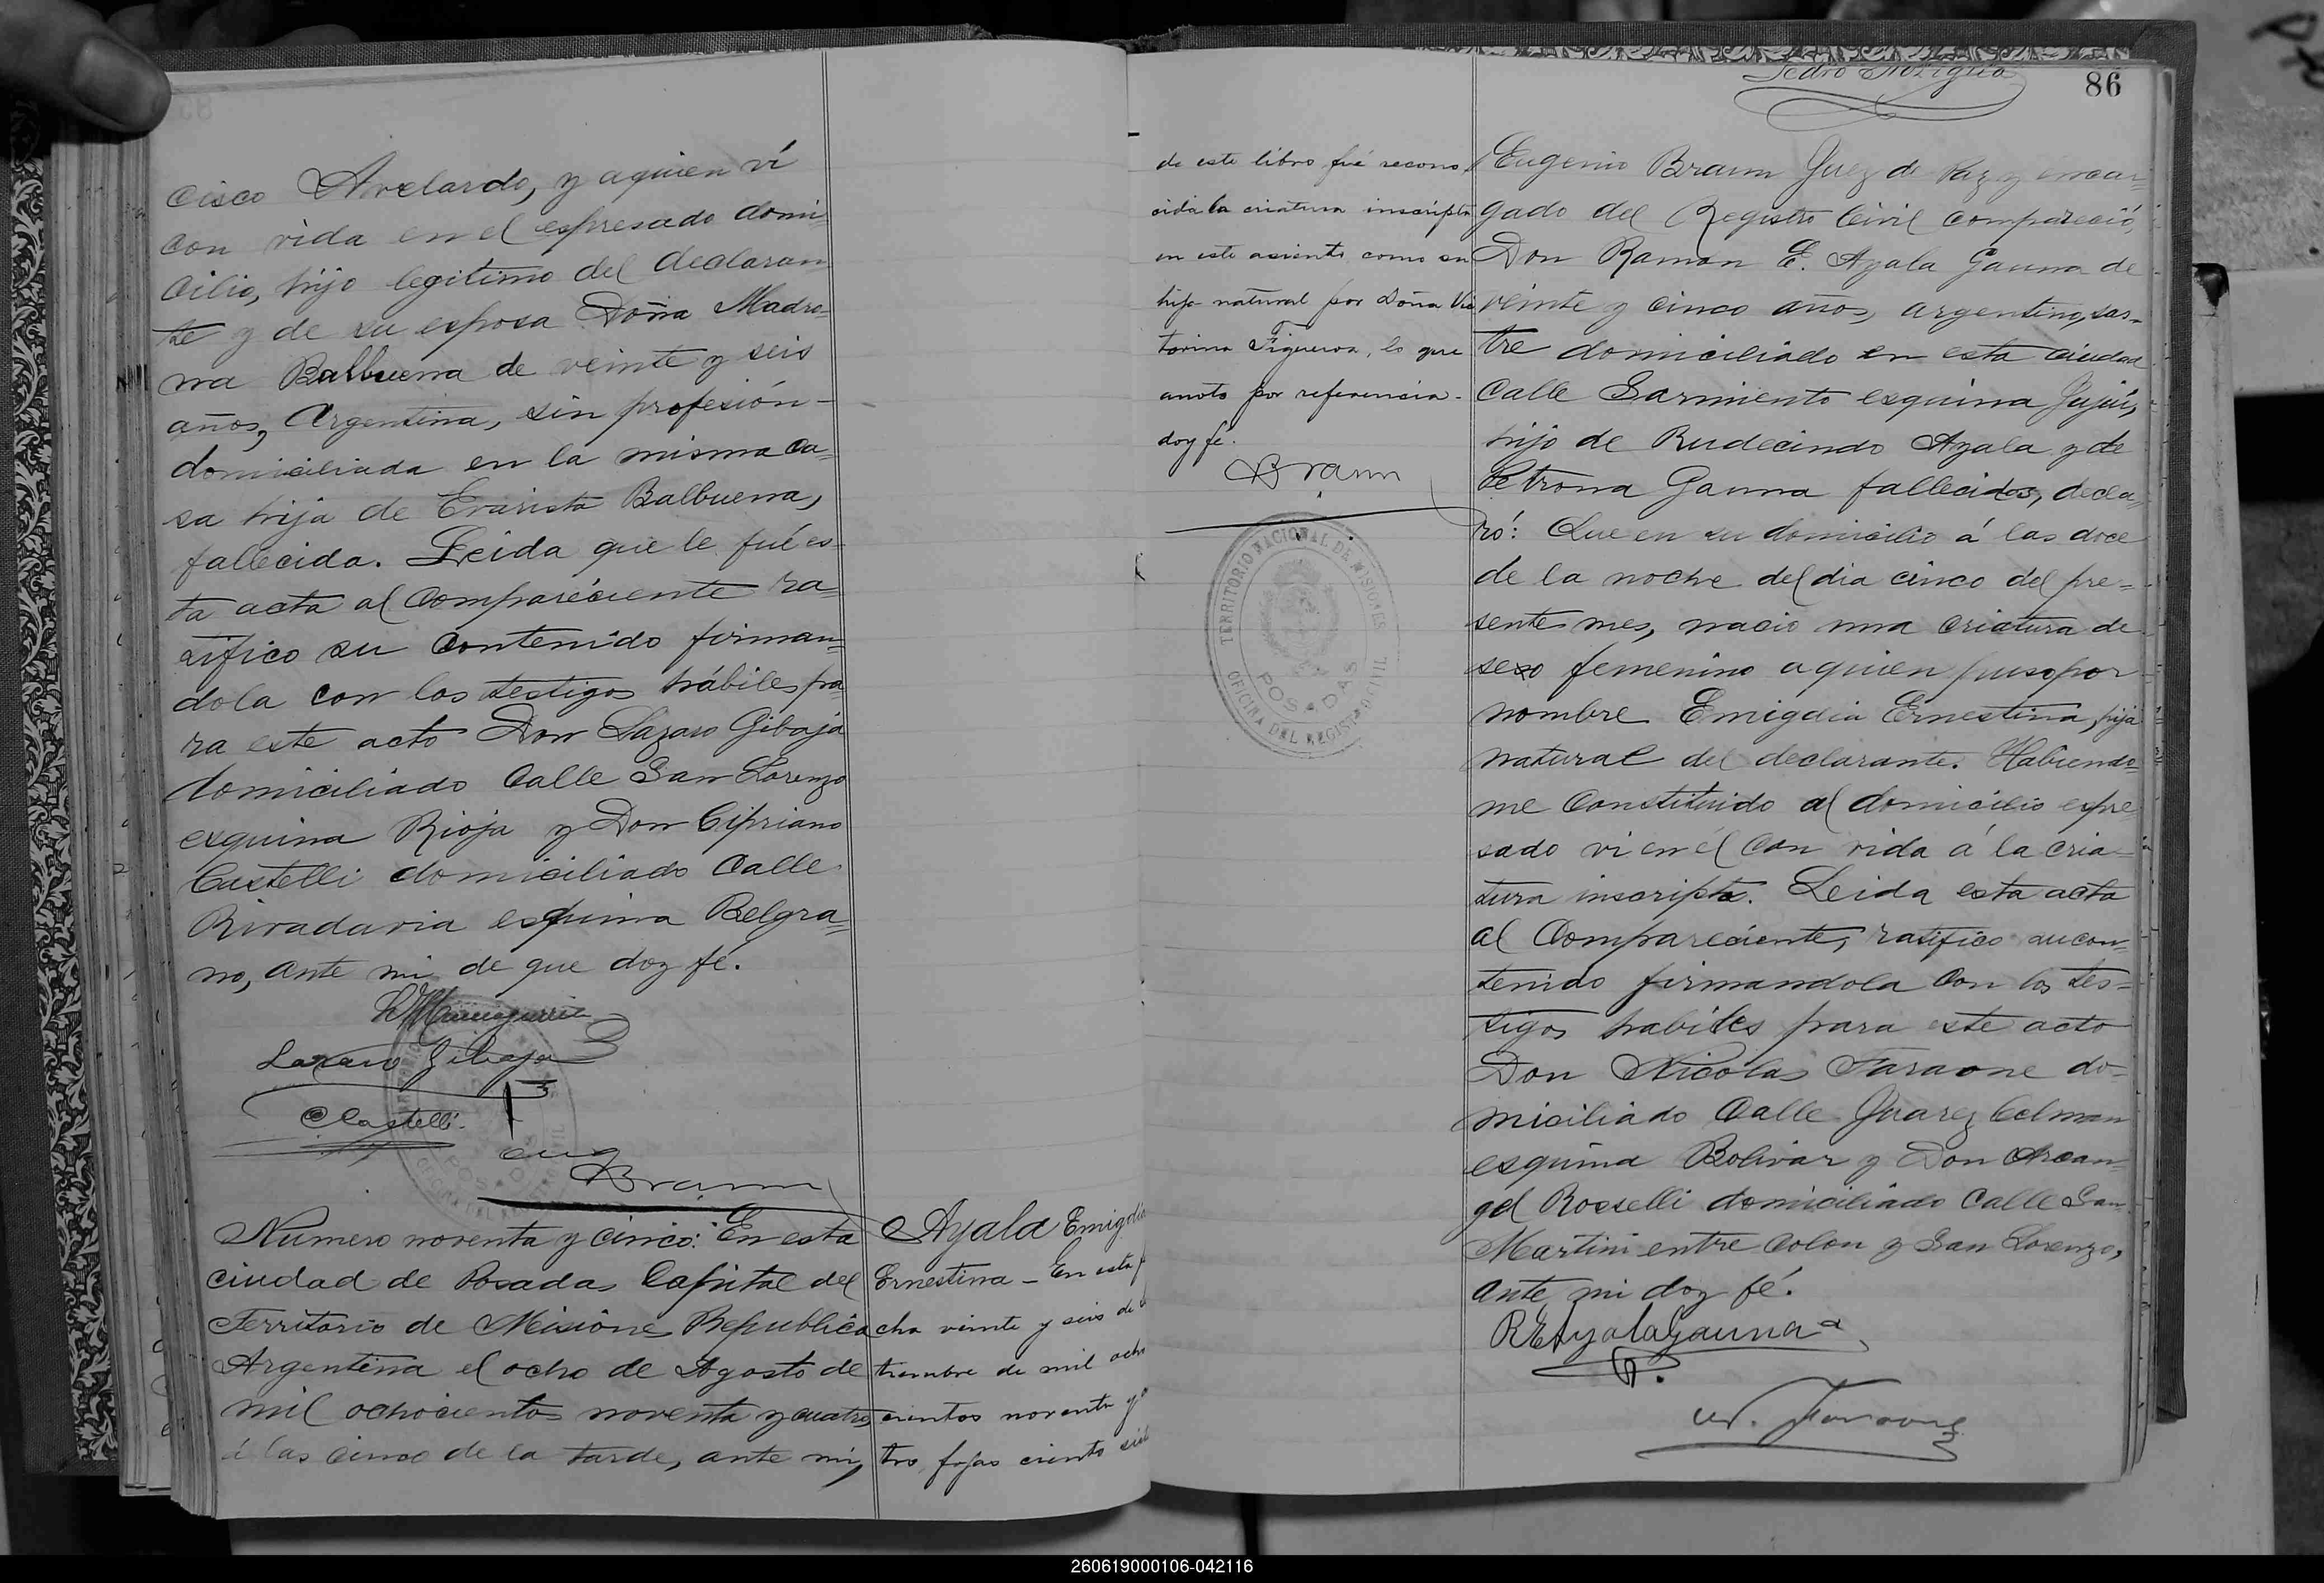 cisco Avelardo, y aquien ví
con vida en el espresado domi-
cilio, hijo legitimo del declaran-
te y de su esposa Doña Madro-
na Balbuena de veinte y seis
años, Argentina, sin profesión -
domiciliada en la misma ca-
sa hija de Evarista Balbuena,
fallecida. Leida que le fué es-
ta acta al Compareciente ra-
tifico su contenido firman-
dola con los testigos hábiles pa-
ra este acto Don Lazaro Gibaja
domiciliado Calle San Lorenzo
esquina Rioja y Don Cipriano
Castelli domiciliado Calle
Rivadavia esquina Belgra-
no, ante mi de que doy fé.
Lazaro Gibaja
C Castelli
Eug
Braun
Numero noventa y cinco: En esta
ciudad de Posadas Capital del
Territorio de Misiones Republica
Argentina el ocho de Agosto de
mil ochocientos noventa y cuatro,
á las cinco de la tarde, ante mi,
Ayala Emigdia
Ernestina - En esta f
cha veinte y seis de
tiembre de mil ocho
cientos noventa y
tro, fojas ciento
86
de este libro fué recono
cida la criatura inscripta
en este asiento como su
hija natural por Doña Vic
torina Figueroa, lo que
anoto por referencia -
doy fé.
Braun
TERRITORIO NACIONAL DE MISIONES
POSADAS
OFICINA DEL REGISTRO CIVIL
Eugenio Braun Juez de Paz y encar-
gado del Registro Civil compareció,
Don Ramon E. Ayala Gauna de
veinte y cinco años, argentino, sas-
tre domiciliado en esta ciudad
Calle Sarmiento esquina Jujui,
hijo de Rudecindo Ayala y de
Petrona Gauna fallecidos, decla-
ró: Que en su domicilio á las doce
de la noche del dia cinco del pre-
sente mes, nacio una criatura de
sexo femenino a quien puso por
nombre Emigdia Ernestina, hija
natural del declarante. Habiendo-
me Constituido al domicilio espre
sado vi en él con vida á la cria-
tura inscripta. Leida esta acta
al Compareciente, ratifico su con-
tenido firmandola con los tes-
tigos habiles para este acto
Don Nicolas Faraone do-
miciliado Calle Juarez Celman
esquina Bolivar y Don Arcan-
gel Rosselli domiciliado Calle San
Martin entre Colon y San Lorenzo,
ante mi doy fé.
R E Ayala Gauna
N. Faraone
260619000106-042116